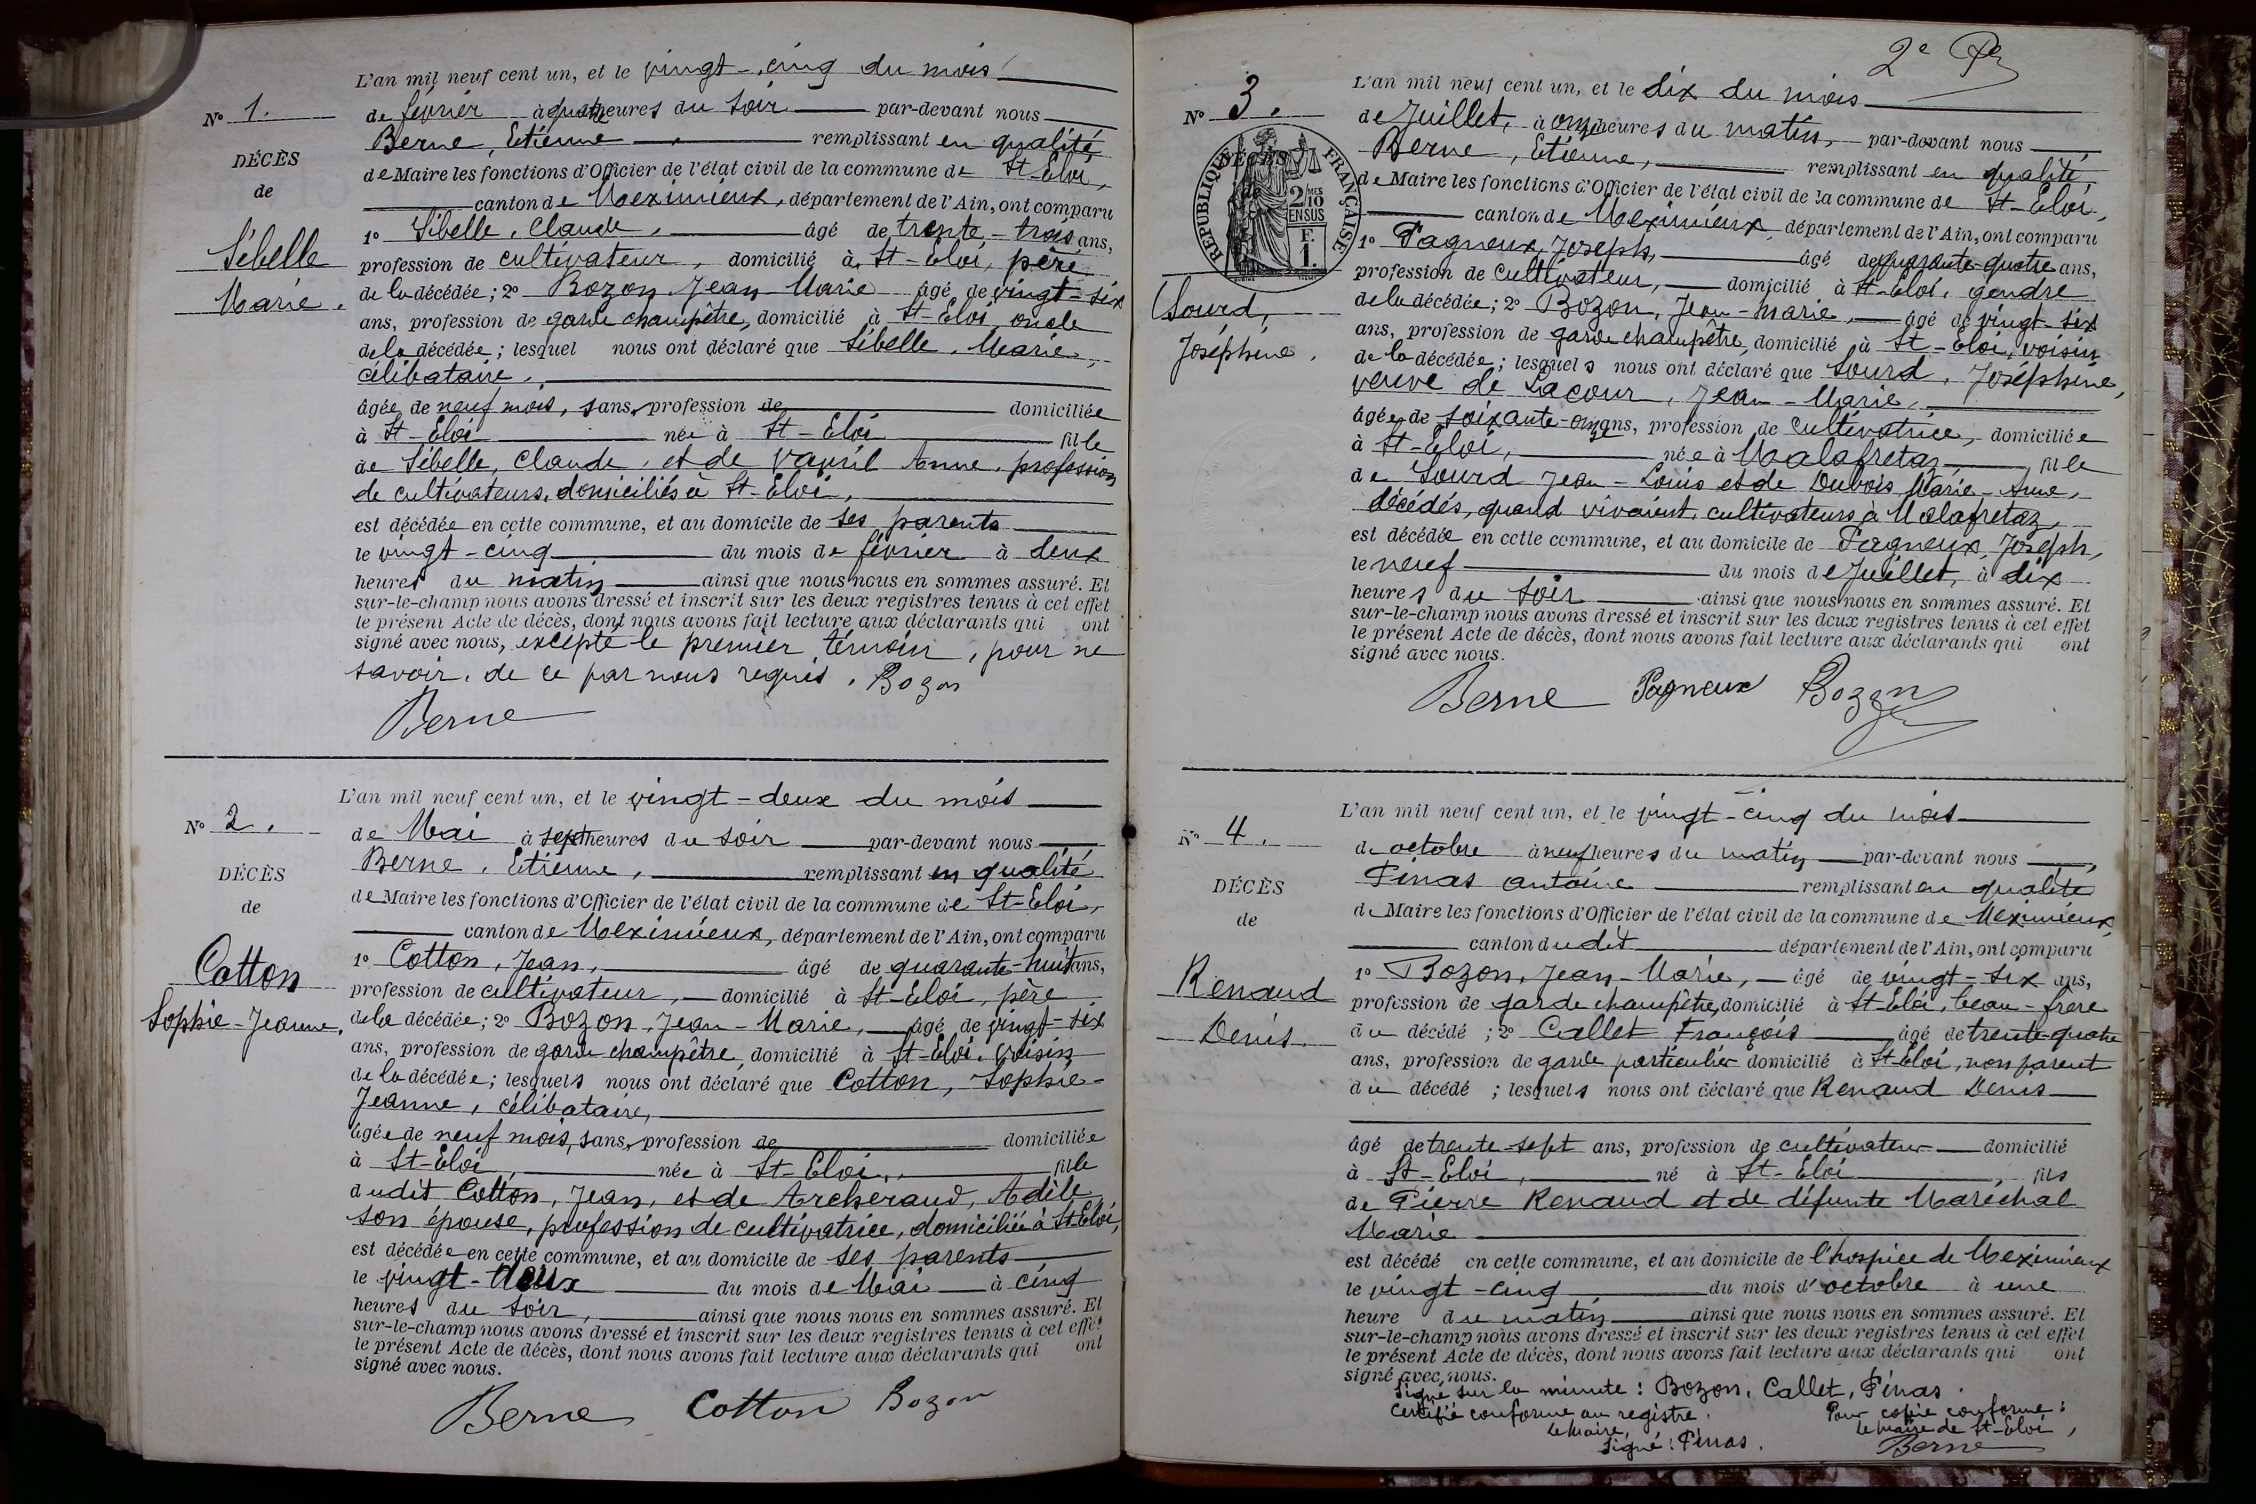 L'an mil neuf cent un, et le vingt-cinq du mois
N° 1.
de février à quatre heures du soir par-devant nous
Berne, Etienne remplissant en qualité
DÉCÈS
de Maire les fonctions d'Officier de l'état civil de la commune de St-Eloi,
de
canton de Meximieux, département de l'Ain, ont comparu
1° Sibelle, Claude, âgé de trente-trois ans,
Sibelle
profession de cultivateur, domicilié à St-Eloi, père
Marie.
de la décédée; 2° Bozon, Jean Marie âgé de vingt-six
ans, profession de garde champêtre, domicilié à St-Eloi, oncle
de la décédée; lesquel nous ont déclaré que Sibelle, Marie,
célibataire,
âgée de neuf mois, sans profession de domiciliée
à St-Eloi née à St-Eloi fille
de Sibelle, Claude, et de Vavril Anne, profession
de cultivateurs, domiciliés à St-Eloi,
est décédée en cette commune, et au domicile de ses parents
le vingt-cinq du mois de février à deux
heures du matin ainsi que nous nous en sommes assuré. Et
sur-le-champ nous avons dressé et inscrit sur les deux registres tenus à cet effet
le présent Acte de décès, dont nous avons fait lecture aux déclarants qui ont
signé avec nous, excepté le premier témoin, pour ne
savoir, de ce par nous requis. Bozon
Berne
L'an mil neuf cent un, et le vingt-deux du mois
N° 2.
de Mai à sept heures du soir par-devant nous
Berne, Etienne, remplissant en qualité
DÉCÈS
de Maire les fonctions d'Officier de l'état civil de la commune de St-Eloi,
de
canton de Meximieux, département de l'Ain, ont comparu
1° Cotton, Jean, âgé de quarante-huit ans,
Cotton
profession de cultivateur, domicilié à St-Eloi, père
Sophie-Jeanne.
de la décédée; 2° Bozon, Jean-Marie, âgé de vingt-six
ans, profession de garde champêtre, domicilié à St-Eloi, voisin
de la décédée; lesquels nous ont déclaré que Cotton, Sophie-
Jeanne, célibataire,
âgée de neuf mois, sans profession de domiciliée
à St-Eloi, née à St-Eloi, fille
dudit Cotton, Jean, et de Archeraud, Adèle
son épouse, profession de cultivatrice, domiciliée à St-Eloi,
est décédée en cette commune, et au domicile de ses parents
le vingt-deux du mois de Mai à cinq
heures du soir, ainsi que nous nous en sommes assuré. Et
sur-le-champ nous avons dressé et inscrit sur les deux registres tenus à cet effet
le présent Acte de décès, dont nous avons fait lecture aux déclarants qui ont
signé avec nous.
Berne Cotton Bozon
2e
L'an mil neuf cent un, et le dix du mois
N° 3.
de Juillet, à onze heures du matin, par-devant nous
Berne, Etienne, remplissant en qualité
DÉCÈS
de
RÉPUBLIQUE FRANÇAISE
2/10 MES
EN SUS
F.
1.
de Maire les fonctions d'Officier de l'état civil de la commune de St-Eloi,
canton de Meximieux, département de l'Ain, ont comparu
1° Pagneux, Joseph, âgé de quarante-quatre ans,
profession de cultivateur, domicilié à St-Eloi, gendre
Sourd,
Joséphine.
de la décédée; 2° Bozon, Jean-Marie, âgé de vingt-six
ans, profession de garde champêtre, domicilié à St-Eloi, voisin
de la décédée; lesquels nous ont déclaré que Sourd, Joséphine,
veuve de Lacour, Jean-Marie,
âgée de soixante-onze ans, profession de cultivatrice, domiciliée
à St-Eloi, née à Malafretaz, fille
de Sourd Jean-Louis et de Dubois Marie-Anne,
décédés, quand vivaient, cultivateurs à Malafretaz,
est décédée en cette commune, et au domicile de Pagneux, Joseph,
le neuf du mois de Juillet, à dix
heures du soir ainsi que nous nous en sommes assuré. Et
sur-le-champ nous avons dressé et inscrit sur les deux registres tenus à cet effet
le présent Acte de décès, dont nous avons fait lecture aux déclarants qui ont
signé avec nous.
Berne Pagneux Bozon
L'an mil neuf cent un, et le vingt-cinq du mois
N° 4.
de octobre à neuf heures du matin par-devant nous
Pinas Antoine remplissant en qualité
DÉCÈS
de Maire les fonctions d'Officier de l'état civil de la commune de Meximieux,
de
canton dudit département de l'Ain, ont comparu
1° Bozon, Jean-Marie, âgé de vingt-six ans,
Renaud
profession de garde champêtre, domicilié à St-Eloi, beau-frère
Denis.
du décédé; 2° Callet François âgé de trente-quatre
ans, profession de garde particulier domicilié à St-Eloi, non parent
du décédé; lesquels nous ont déclaré que Renaud Denis
âgé de trente-sept ans, profession de cultivateur domicilié
à St-Eloi, né à St-Eloi, fils
de Pierre Renaud et de défunte Maréchal
Marie
est décédé en cette commune, et au domicile de l'hospice de Meximieux
le vingt-cinq du mois d'octobre à une
heure du matin ainsi que nous nous en sommes assuré. Et
sur-le-champ nous avons dressé et inscrit sur les deux registres tenus à cet effet
le présent Acte de décès, dont nous avons fait lecture aux déclarants qui ont
signé avec nous.
Signé sur la minute: Bozon, Callet, Pinas.
Certifié conforme au registre.
Le Maire,
Signé: Pinas.
Pour copie conforme:
Le Maire de St-Eloi,
Berne